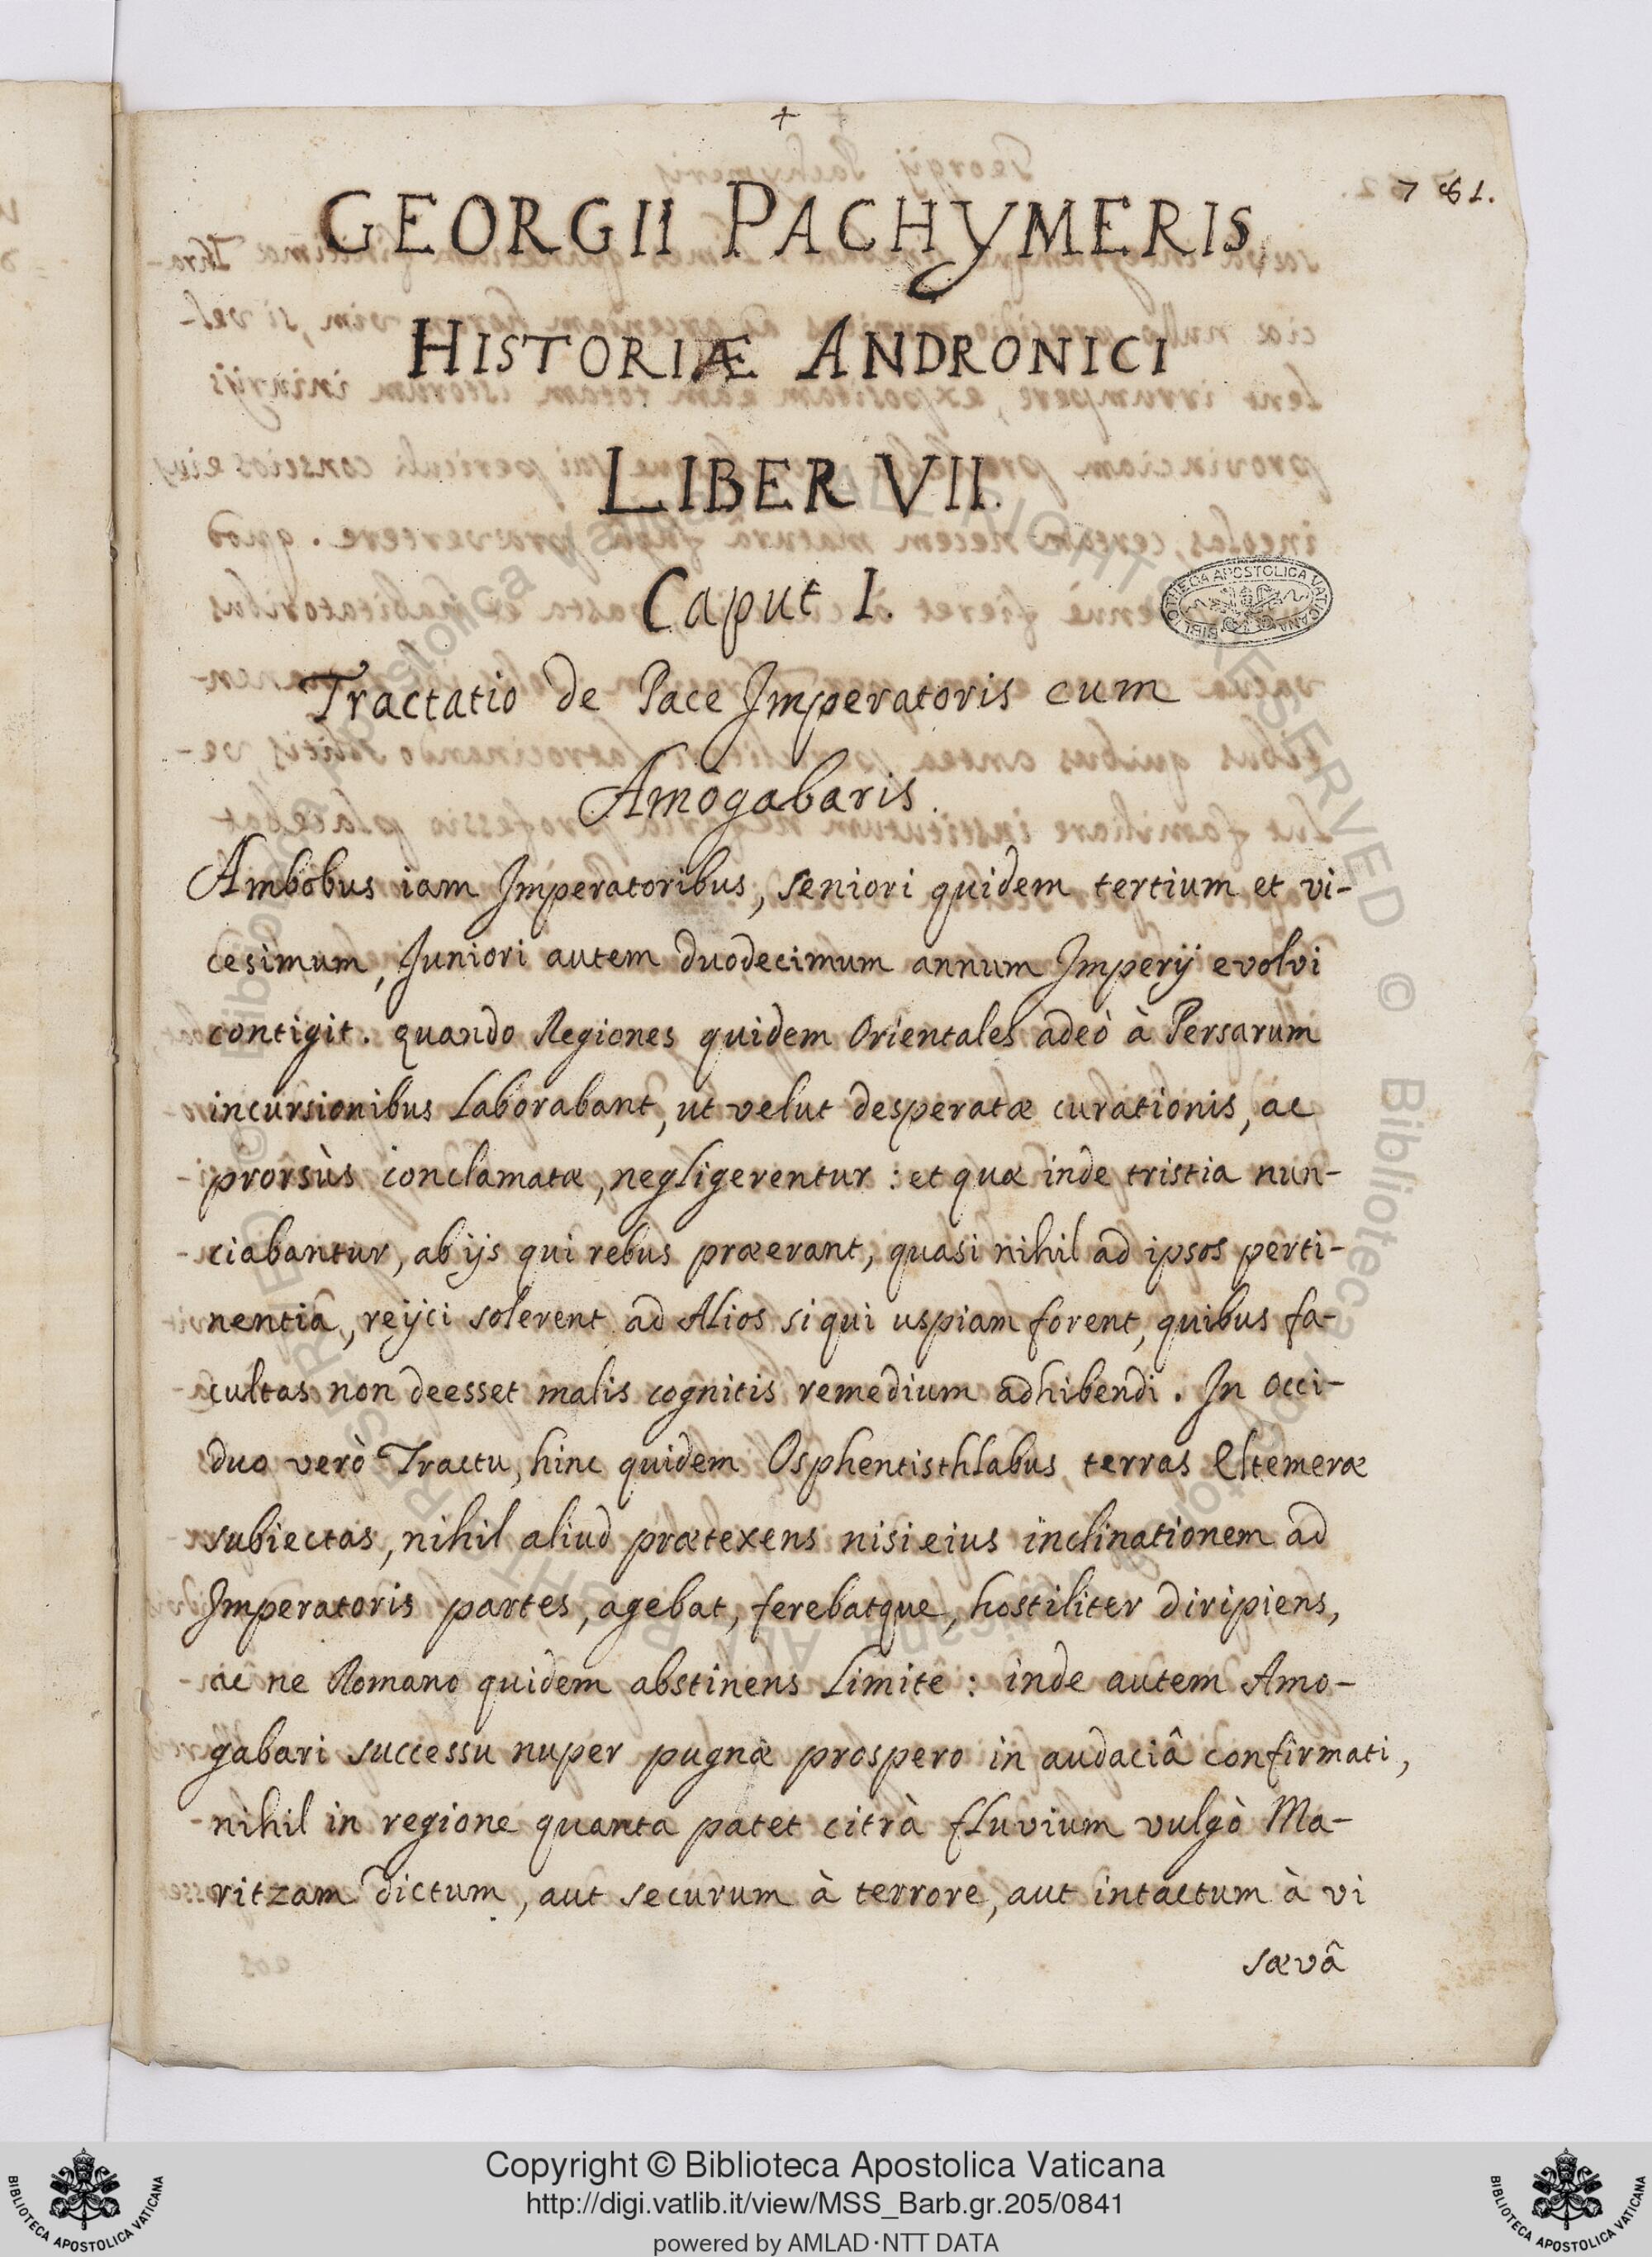 +
781.
GEORGII PACHYMERIS
HISTORIÆ ANDRONICI
LIBER VII.
Caput I.
Tractatio de Pace Imperatoris cum
Amogabaris.
Ambobus iam Imperatoribus, seniori quidem tertium et vi-
cesimum, Juniori autem duodecimum annum Imperij evolvi
contigit. quando Regiones quidem Orientales adeò à Persarum
incursionibus laborabant, ut velut desperatæ curationis, ac
prorsùs conclamatæ, negligerentur: et quæ inde tristia nun-
ciabantur, ab ijs qui rebus præerant, quasi nihil ad ipsos perti-
nentia, reijci solerent ad Alios si qui uspiam forent, quibus fa-
cultas non deesset malis cognitis remedium adhibendi. In occi-
duo verò Tractu, hinc quidem Osphentisthlabus terras Eltemeræ
subiectas, nihil aliud prætexens nisi eius inclinationem ad
Imperatoris partes, agebat, ferebatque, hostiliter diripiens,
ac ne Romano quidem abstinens limite: inde autem Amo-
gabari successu nuper pugnæ prospero in audaciâ confirmati,
nihil in regione quanta patet citrà fluvium vulgò Ma-
ritzam dictum, aut securum à terrore, aut intactum à vi
sævâ
BIBLIOTHECA APOSTOLICA VATICANA
Copyright © Biblioteca Apostolica Vaticana
http://digi.vatlib.it/view/MSS_Barb.gr.205/0841
powered by AMLAD·NTT DATA
BIBLIOTECA APOSTOLICA VATICANA
BIBLIOTECA APOSTOLICA VATICANA